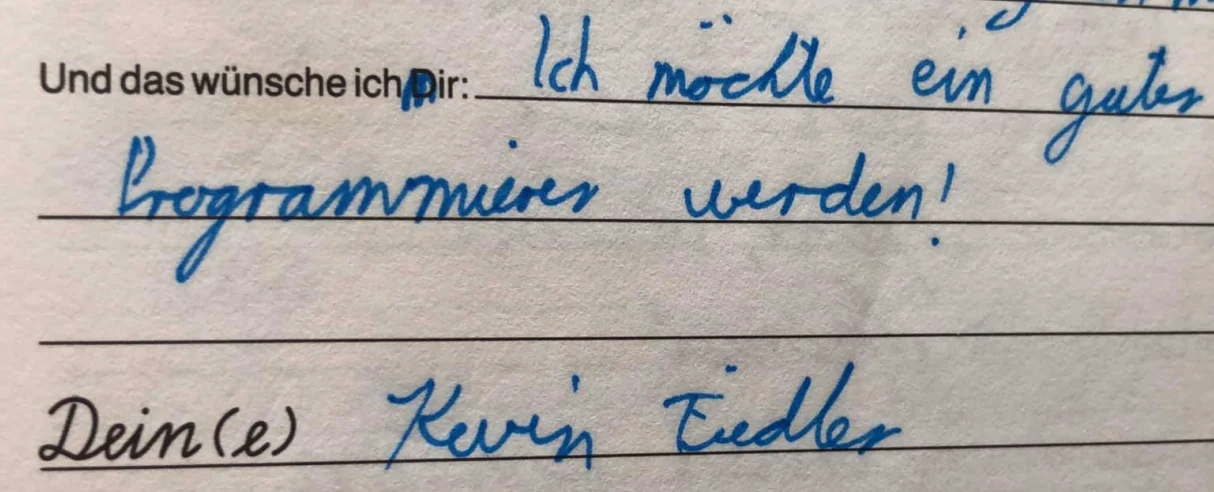 Und das wünsche ich mir: Ich möchte ein guter
Programmierer werden!
Dein(e) Kevin Fiedler